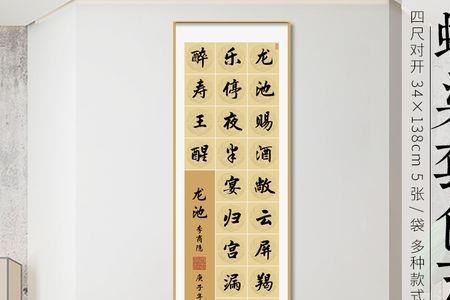 龙池赐酒敞云屏羯
乐停夜半宴归宫漏
醉寿王醒
龙池
李商隐
庚子年
四尺对开 34×138cm 5张/袋 多种款式